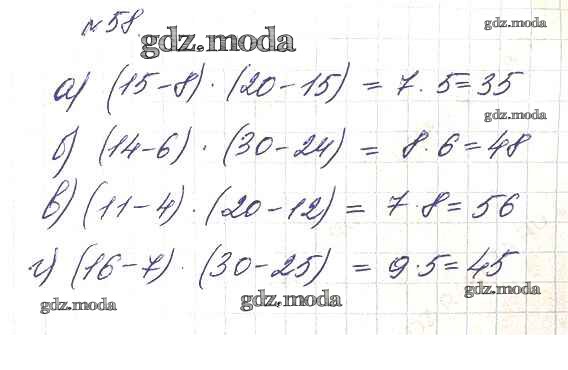 №58.
gdz.moda
gdz.moda
а) (15-8) · (20-15) = 7 · 5 = 35
gdz.moda
б) (14-6) · (30-24) = 8 · 6 = 48
в) (11-4) · (20-12) = 7 · 8 = 56
г) (16-7) · (30-25) = 9 · 5 = 45
gdz.moda
gdz.moda
gdz.moda